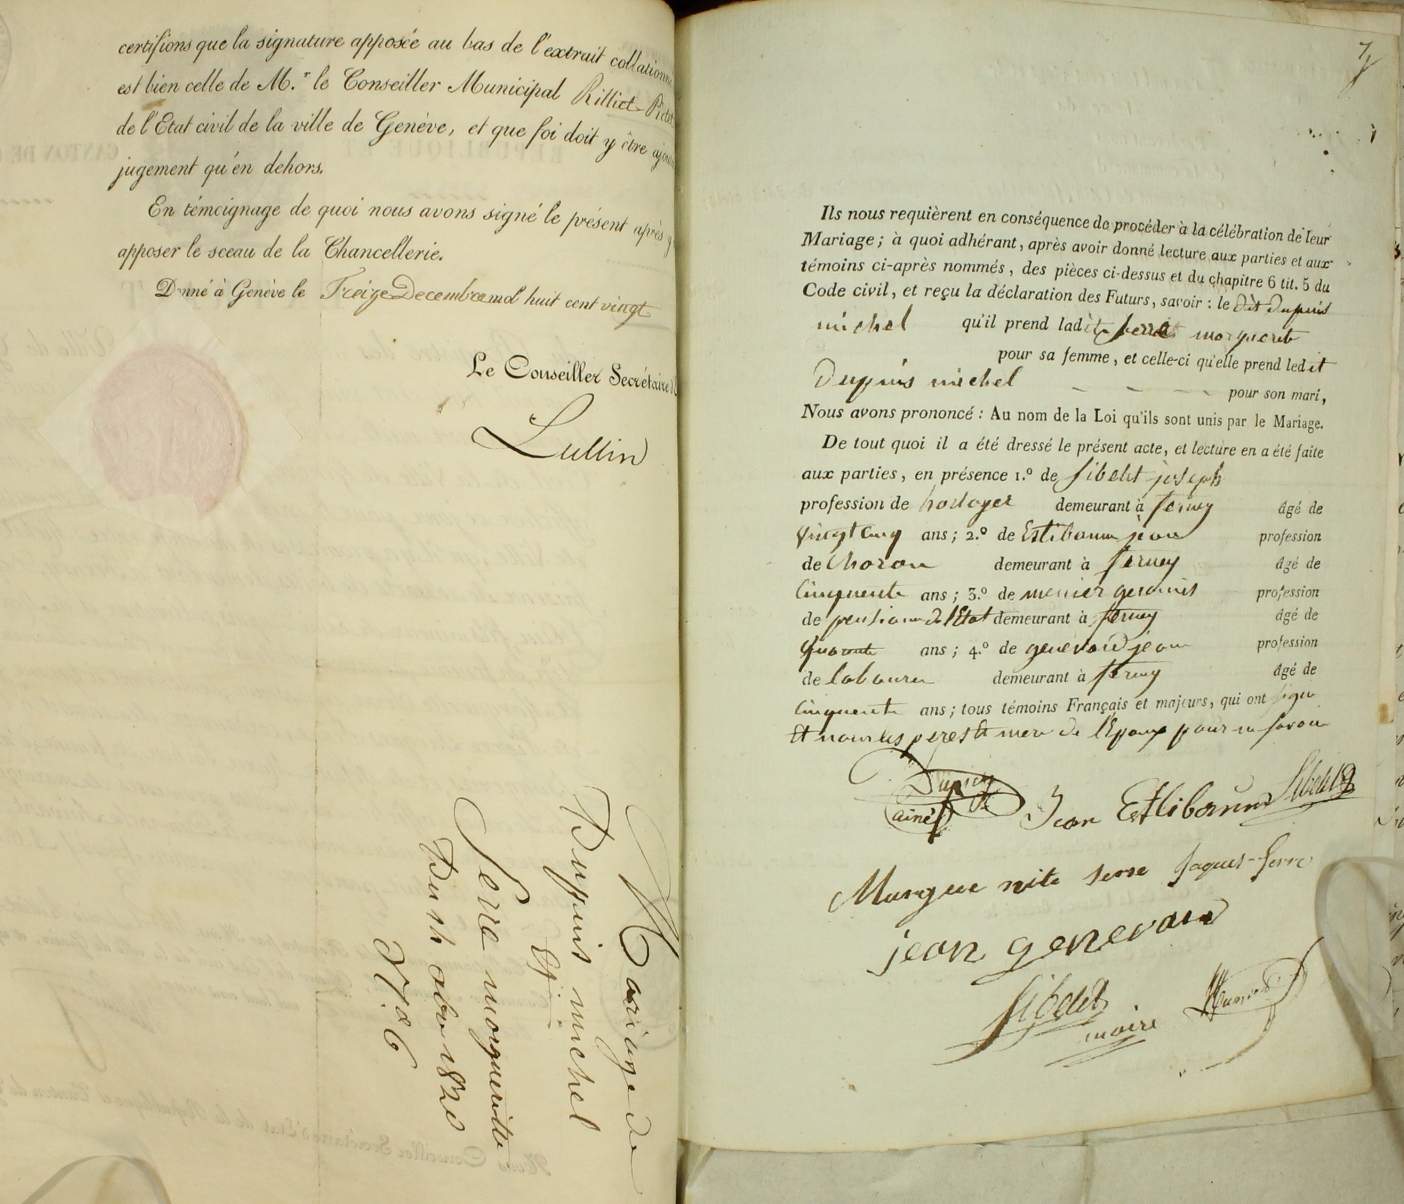 certifions que la signature apposée au bas de l'extrait collationn
est bien celle de M.r le Conseiller Municipal Rilliet-Pictet
de l'Etat civil de la ville de Genève, et que foi doit y être ajou
jugement qu'en dehors.
En témoignage de quoi nous avons signé le présent après y
apposer le sceau de la Chancellerie.
Donné à Genève le Treize Decembre mil huit cent vingt
Le Conseiller Secrétaire
Lullin
Mariage de
Dupuis michel
Et
Serre marguerite
Du 14 xbre 1820
N.o 6
7
Ils nous requièrent en conséquence de procéder à la célébration de leur
Mariage; à quoi adhérant, après avoir donné lecture aux parties et aux
témoins ci-après nommés, des pièces ci-dessus et du chapitre 6 tit. 5 du
Code civil, et reçu la déclaration des Futurs, savoir: le dit Dupuis
michel qu'il prend ladite Serre marguerite
pour sa femme, et celle-ci qu'elle prend ledit
Dupuis michel — — — — pour son mari,
Nous avons prononcé: Au nom de la Loi qu'ils sont unis par le Mariage.
De tout quoi il a été dressé le présent acte, et lecture en a été faite
aux parties, en présence 1.º de joseph
profession de horloger demeurant à ferney âgé de
vingt cinq ans; 2.º de Estibaum jean profession
de charon demeurant à ferney âgé de
cinquente ans; 3.º de profession
de pension de l'Etat demeurant à ferney âgé de
quarante ans; 4.º de genevard jean profession
de laboureur demeurant à ferney âgé de
cinquente ans; tous témoins Français et majeurs, qui ont signé
Et nom les peres et mere de l'Epoux pour ne savoir
Dupuis
ainé
Jean Estibaum
Margue rite serre Jaques Serre
jean genevard
maire